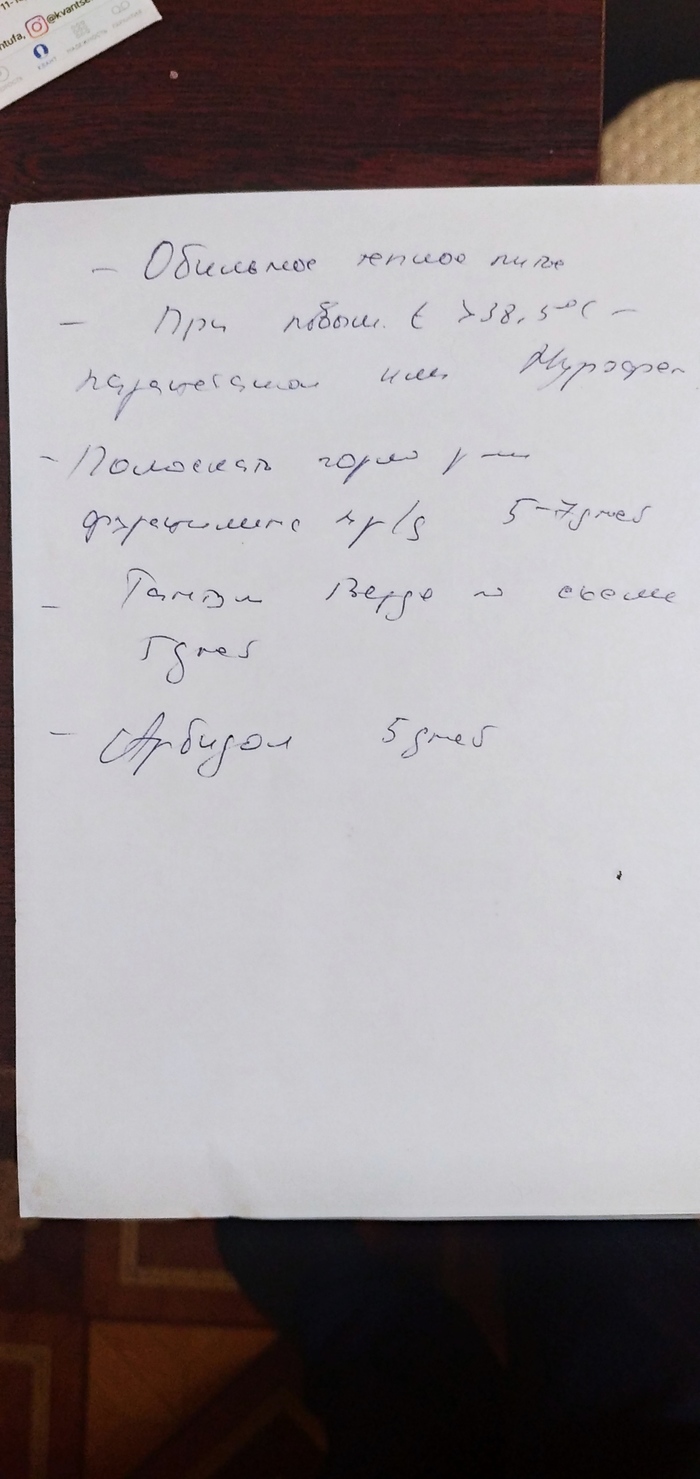 11-1
ntufa, @kvantse
КВАНТ
НАДЕЖНОСТЬ
ГАРАНТИЯ
- Обильное теплое питье
- При повыш. t >38,5°C -
парацетамол или Нурофен
- Полоскать горло р-ом
фурацилина 4р/д 5-7дней
- Тантум Верде по схеме
5дней
- Арбидол 5дней